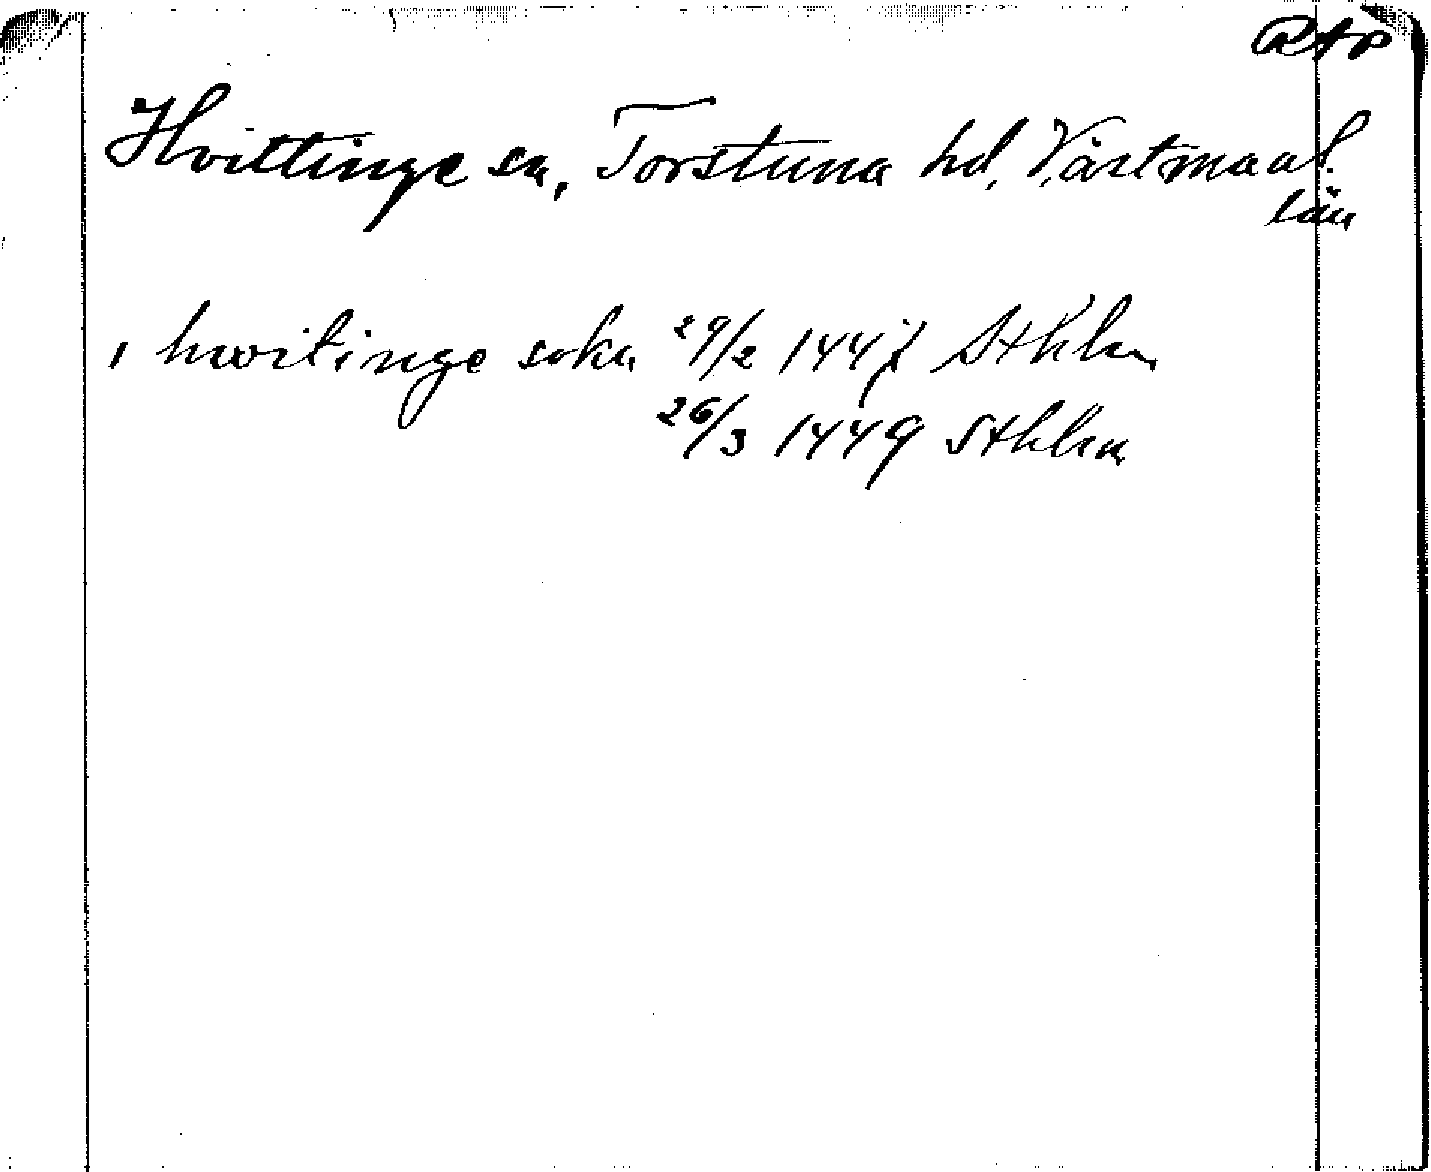 RAP
Hvittinge sn, Torstuna hd, Västmanl.
län
i hwitinge sokn 29/2 1447 Sthlm
26/3 1449 Sthlm